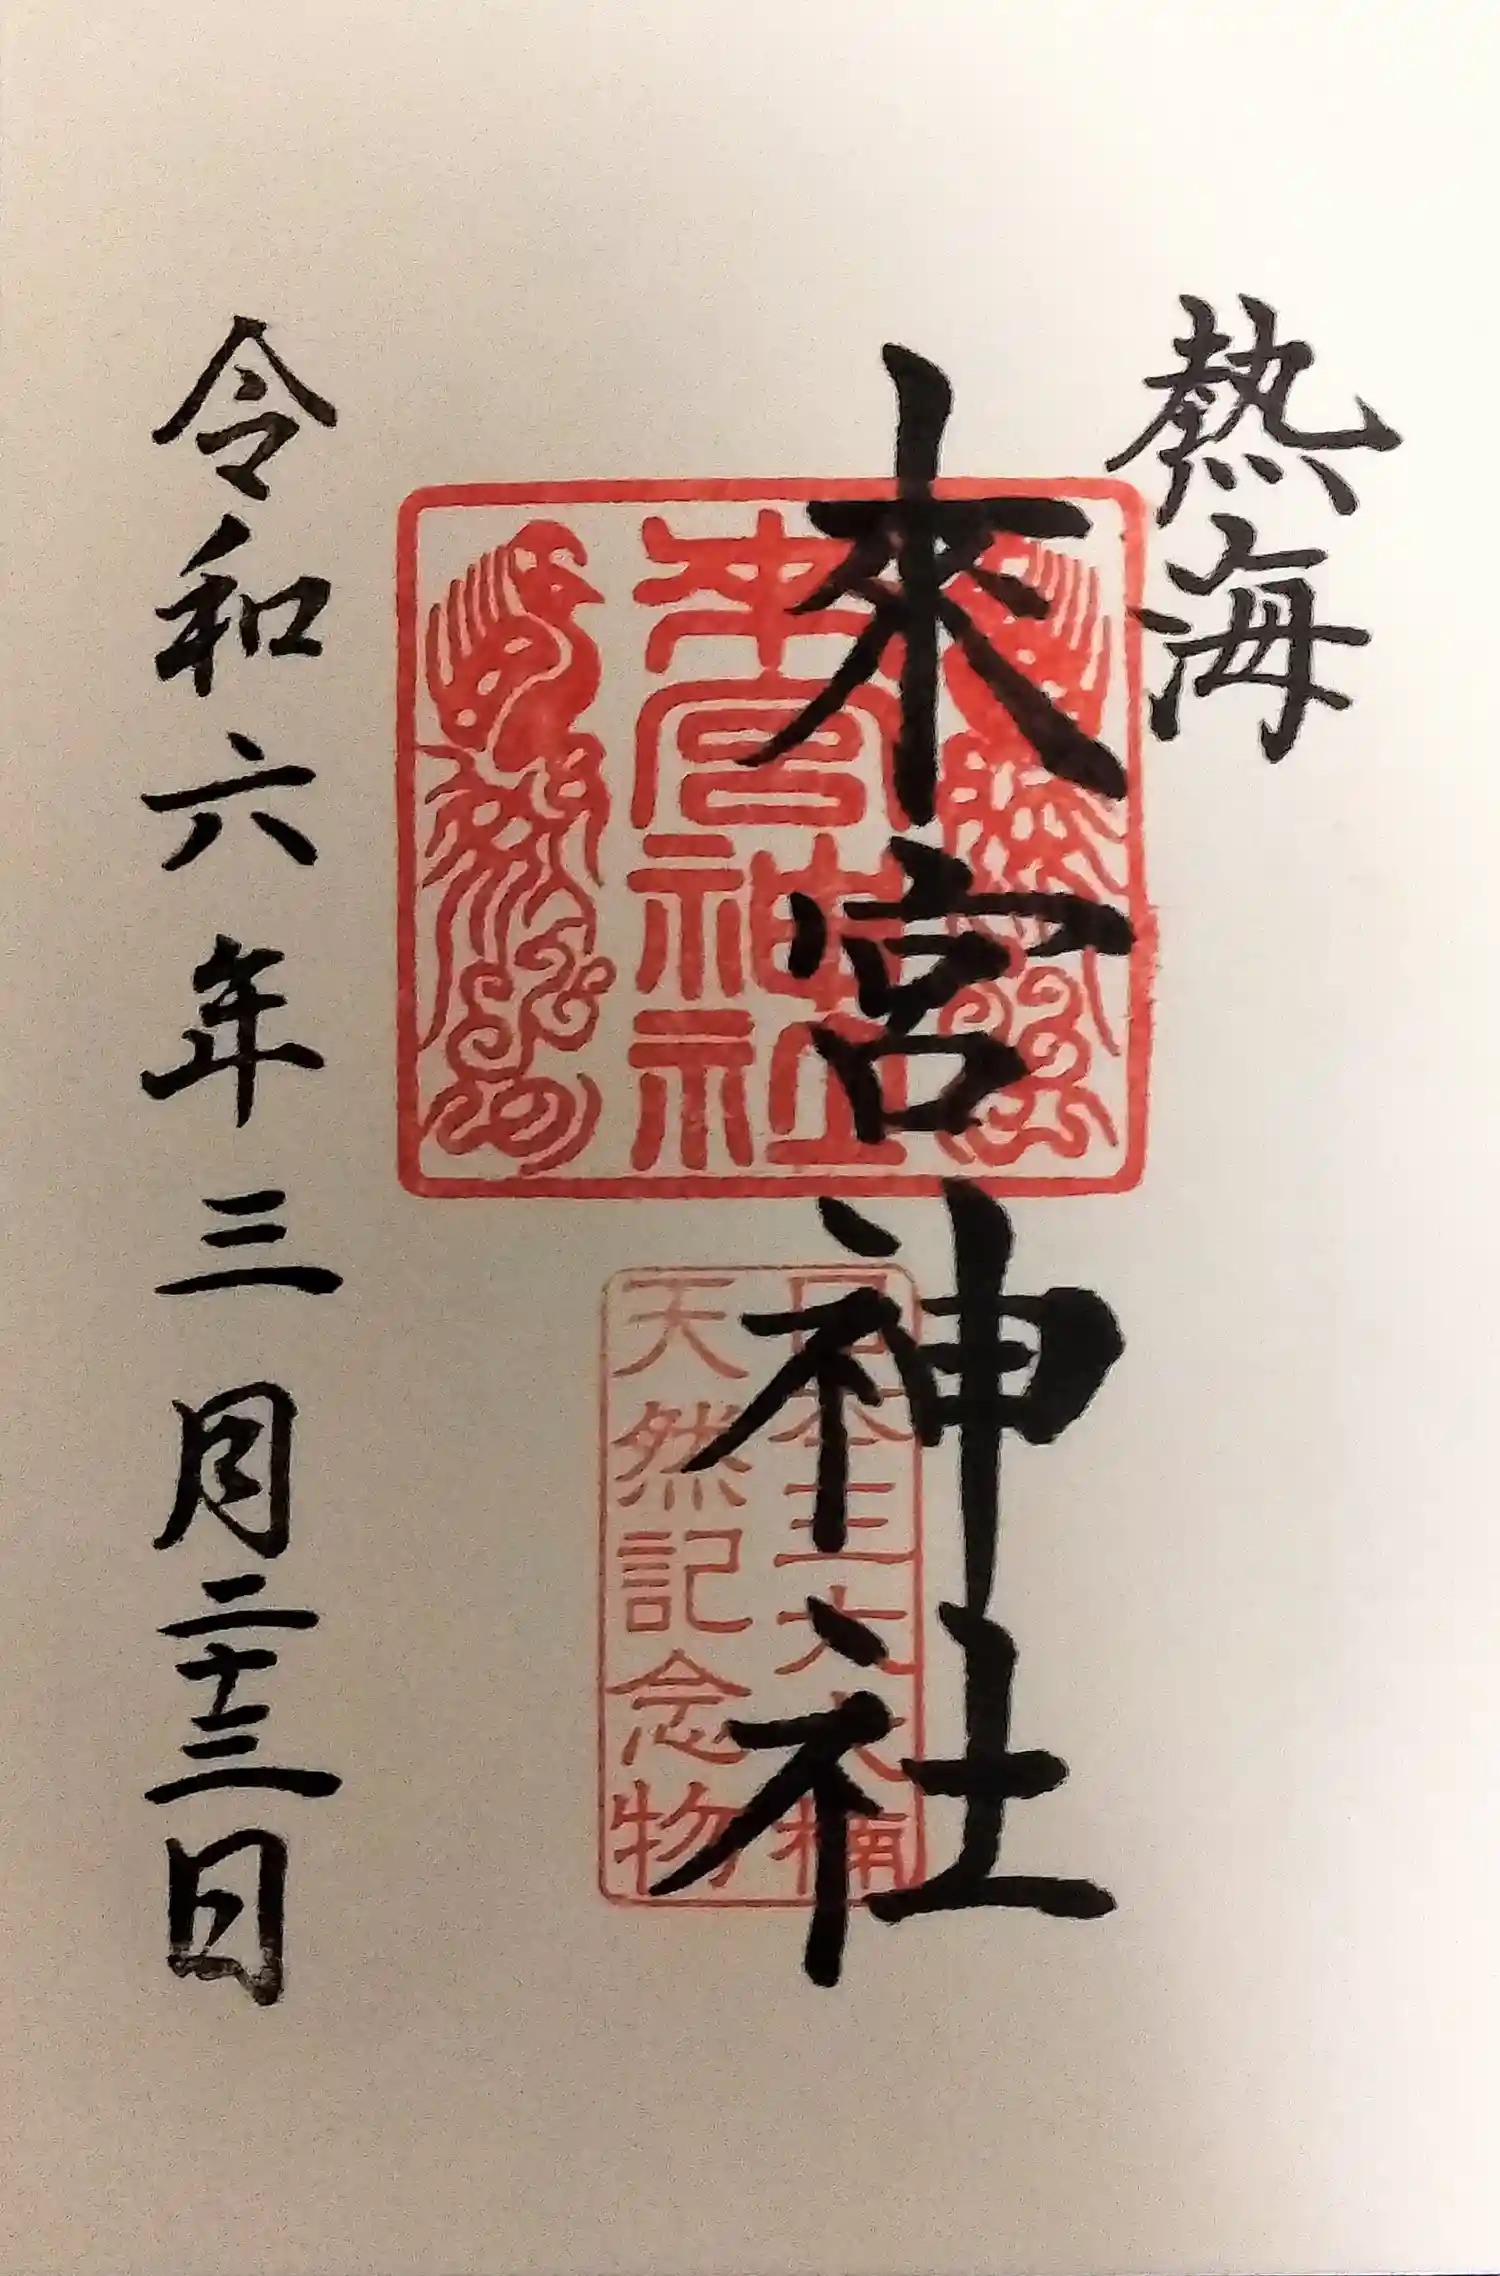 熱海
來宮神社
來宮神社
日本三大大楠
天然記念物
令和六年三月二十三日